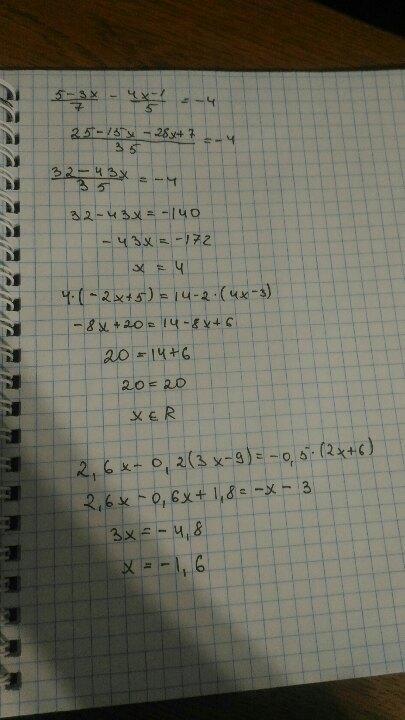 (5-3x)/7 - (4x-1)/5 = -4
(25-15x-28x+7)/35 = -4
(32-43x)/35 = -4
32-43x = -140
-43x = -172
x = 4
4·(-2x+5) = 14-2·(4x-3)
-8x+20 = 14-8x+6
20 = 14+6
20 = 20
x ∈ R
2,6x-0,2(3x-9) = -0,5·(2x+6)
2,6x-0,6x+1,8 = -x-3
3x = -4,8
x = -1,6